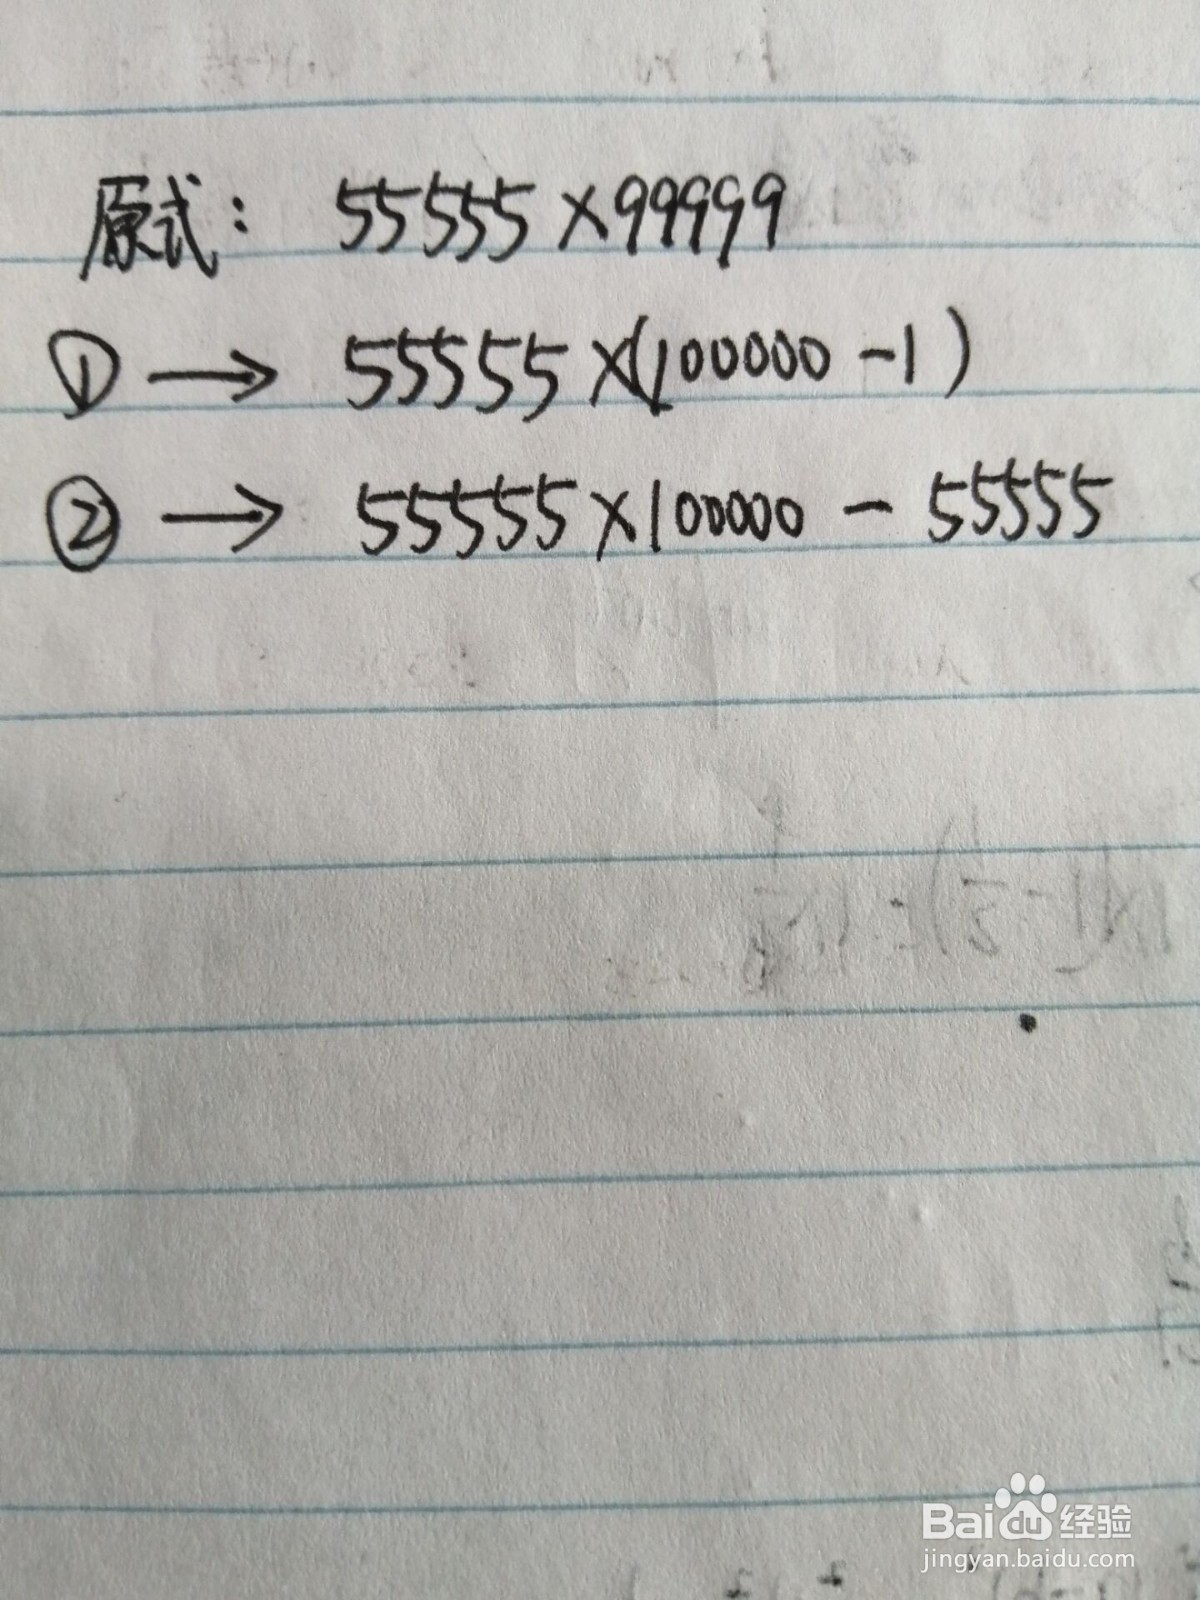 原式: 55555×99999
① → 55555×(100000-1)
② → 55555×100000-55555
Baidu经验
jingyan.baidu.com